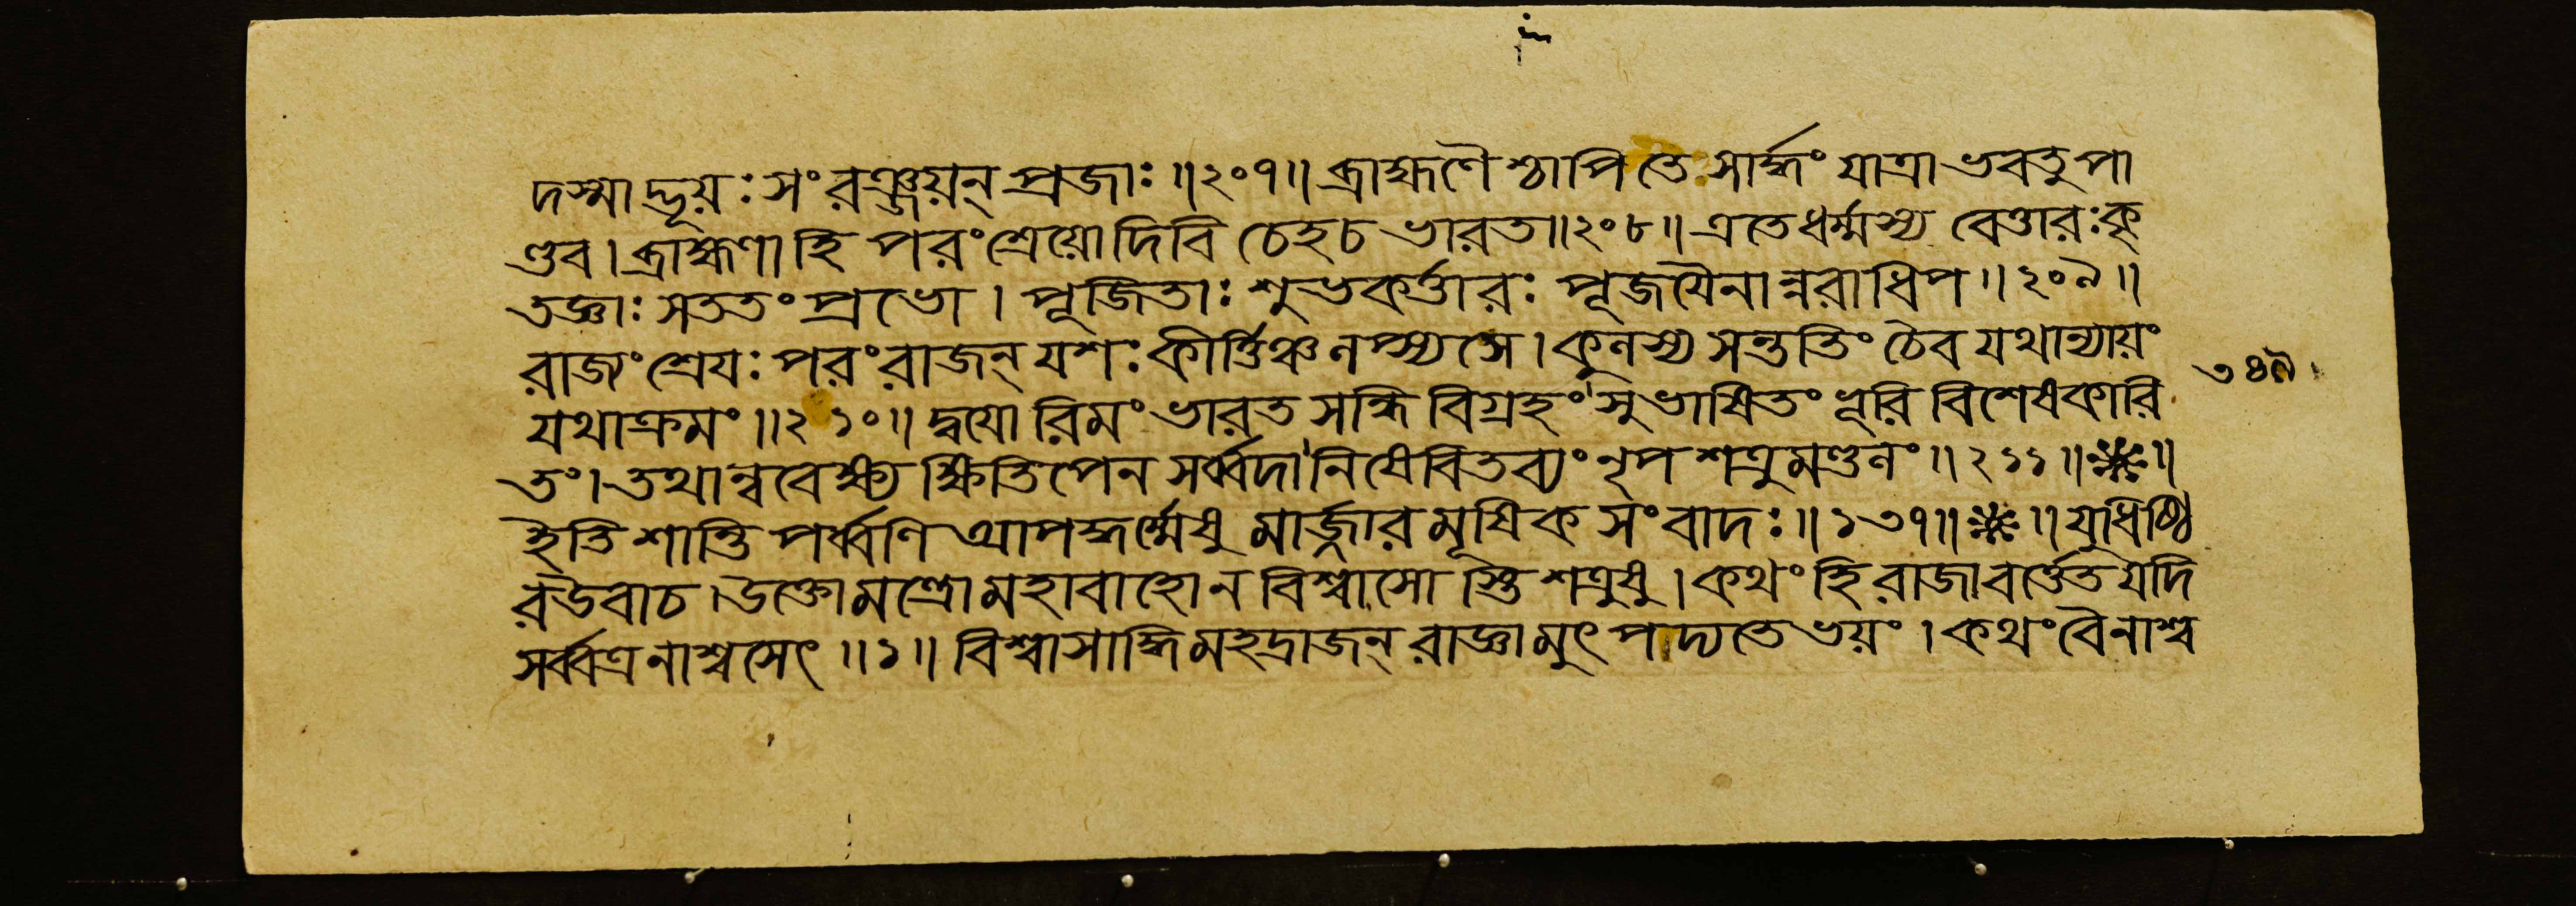 দস্মাদ্ভূয়ঃ সংরঞ্জয়ন্ প্রজাঃ ॥২০৭॥ ব্রাহ্মণৈশ্চাপি তে সার্দ্ধং যাত্রা ভবতু পা
ণ্ডব। ব্রাহ্মণা হি পরং শ্রেয়ো দিবি চেহ চ ভারত॥২০৮॥ এতে ধর্ম্মস্য বেত্তারঃ কৃ
তজ্ঞাঃ সততং প্রভো। পূজিতাঃ শুভকর্ত্তারঃ পূজয়ৈনান্নরাধিপ॥২০৯॥
রাজ্যং শ্রেয়ঃ পরং রাজন্ যশঃ কীর্ত্তিঞ্চ লপ্স্যসে। কুলস্য সন্ততিং চৈব যথান্যায়ং
যথাক্রমং॥২১০॥ দ্বয়োরিমং ভারত সন্ধিবিগ্রহং সুভাষিতং ভূরি বিশেষকারি
তং। তথান্ববেক্ষ্য ক্ষিতিপেন সর্ব্বদা নিষেবিতব্যং নৃপ শত্রুমণ্ডলং॥২১১॥❋॥
ইতি শান্তিপর্ব্বণি আপদ্ধর্ম্মেষু মার্জ্জারমূষিকসংবাদঃ॥১৩৭॥❋॥ যুধিষ্ঠি
র উবাচ। উক্তো মন্ত্রো মহাবাহো ন বিশ্বাসোস্তি শত্রুষু। কথং হি রাজা বর্ত্তেত যদি
সর্ব্বত্র নাশ্বসেৎ॥১॥ বিশ্বাসাদ্ধি মহদ্রাজন্ রাজ্ঞামুৎপদ্যতে ভয়ং। কথং বৈ নাশ্ব
৩৪৯